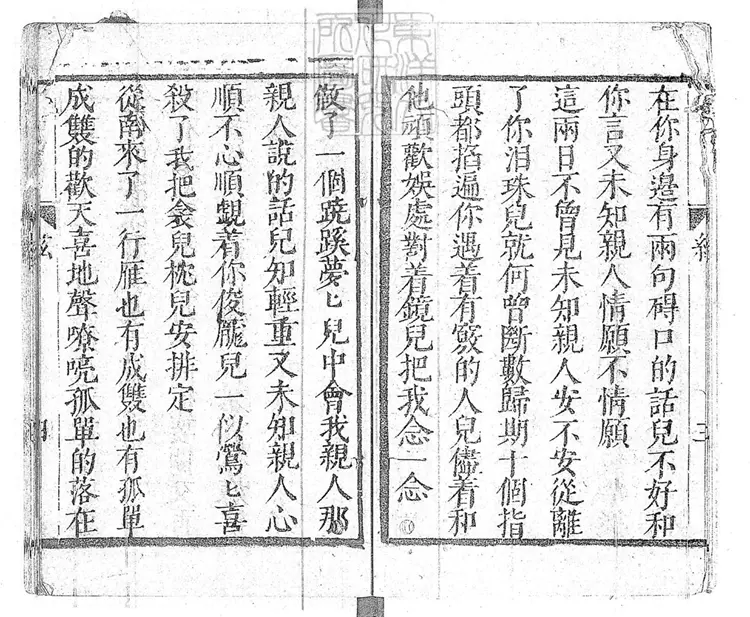 三
在你身邊有兩句碍口的話兒不好和
你言又未知親人情願不情願
這兩日不曾見未知親人安不安從離
了你泪珠兒就何曾斷數歸期十個指
頭都掐遍你遇着有竅的人兒儘着和
他頑歡娛處對着鏡兒把我念一念
做了一個蹺蹊夢匕兒中會我親人那
親人說的話兒知輕重又未知親人心
順不心順覷着你俊龎兒一似鶯匕喜
殺了我把衾兒枕兒安排定
從南來了一行雁也有成雙也有孤單
成雙的歡天喜地聲嘹喨孤單的落在
絃 四